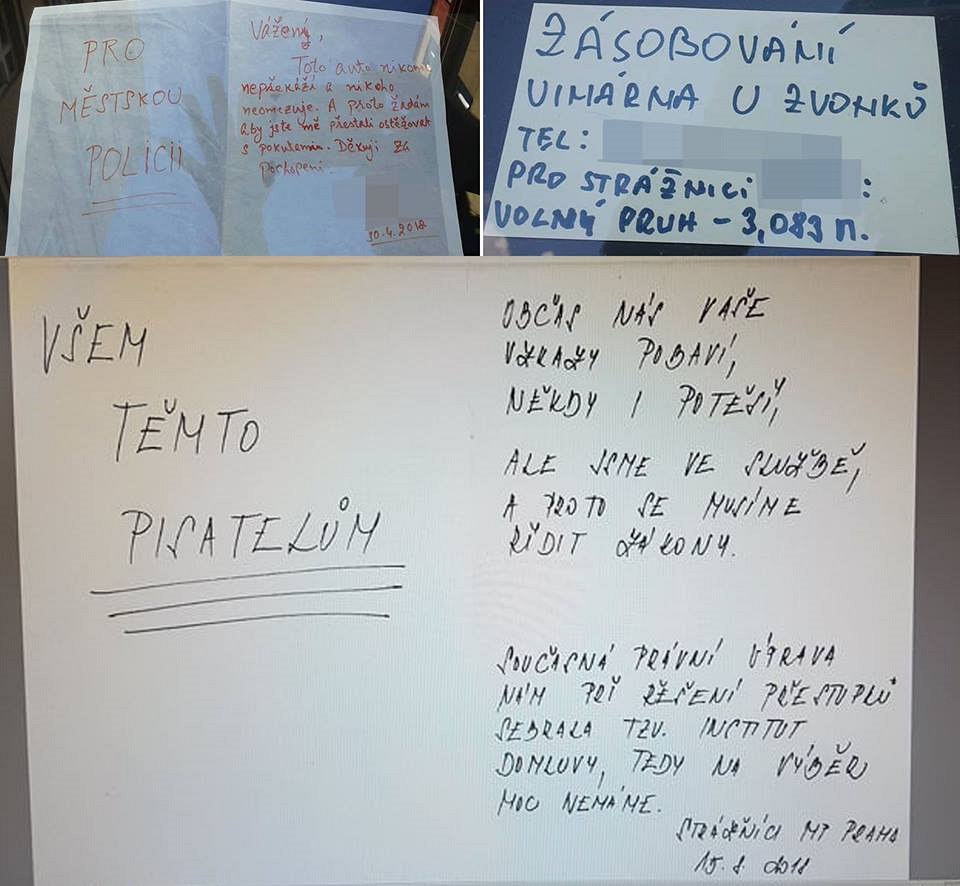 PRO
MĚSTSKOU
POLICII
Vážený,
Toto auto nikomu
nepřekáží a nikoho
neomezuje. A proto žádám
aby jste mě přestali obtěžovat
s pokutami. Děkuji za
pochopení.
30.4.2018
ZÁSOBOVÁNÍ
VINÁRNA U ZVONKŮ
TEL:
PRO STRÁŽNICI :
VOLNÝ PRUH - 3,083 m.
VŠEM
TĚMTO
PISATELŮM
OBČAS NÁS VAŠE
VZKAZY POBAVÍ,
NĚKDY I POTĚŠÍ,
ALE JSME VE SLUŽBĚ,
A PROTO SE MUSÍME
ŘÍDIT ZÁKONY.
SOUČASNÁ PRÁVNÍ ÚPRAVA
NÁM PŘI ŘEŠENÍ PŘESTUPKŮ
SEBRALA TZV. INSTITUT
DOMLUVY, TEDY NA VÝBĚR
MOC NEMÁME.
STRÁŽNÍCI MP PRAHA
15. 8. 2018